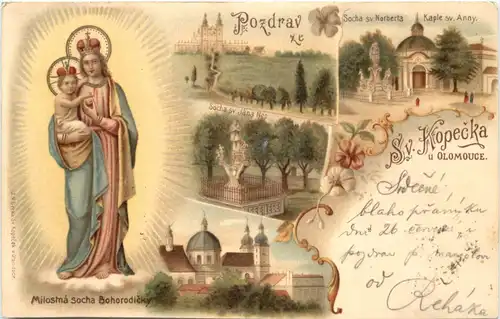 Pozdrav
ze
Socha sv. Norberta
Kaple sv. Anny.
Socha sv. Jana Nep.
Sv. Kopečka
u OLOMOUCE.
Srdečné
blaho přání k
dni 26 června i
pozdrav p. manželom
od Řeháka
Milostná socha Bohorodičky